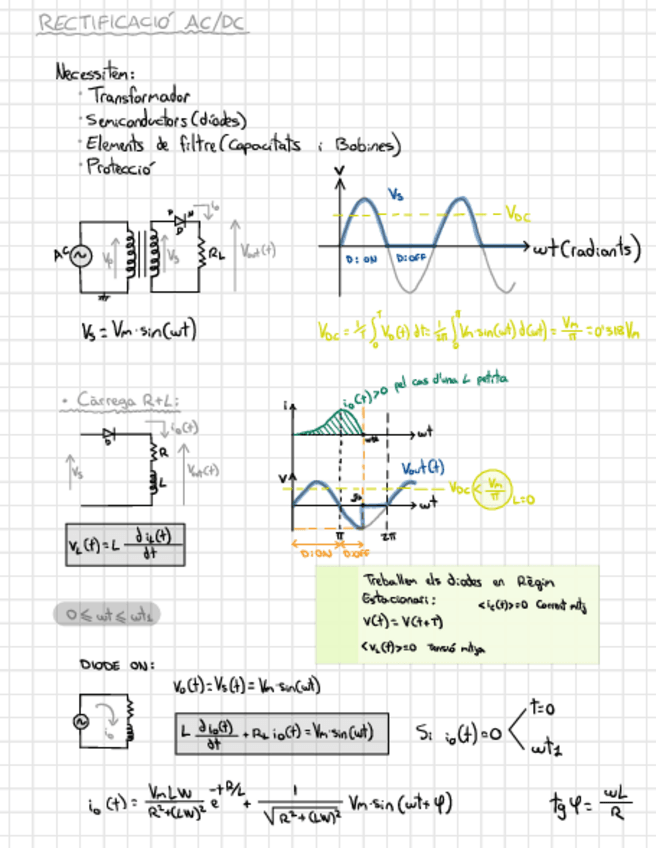 RECTIFICACIÓ AC/DC
Necessitem:
· Transformador
· Semiconductors (díodes)
· Elements de filtre (Capacitats i Bobines)
· Protecció
AC
Vp
Vs
D
io
RL
Vout(t)
V
Vs
VDC
D: ON
D: OFF
wt (radiants)
Vs = Vm·sin(wt)
VDC = 1/T ∫₀ᵀ Vo(t) dt = 1/2π ∫₀^π Vm sin(wt) d(wt) = Vm/π = 0'318 Vm
· Càrrega R+L:
io(t)>0 pel cas d'una L petita
D
io(t)
R
L
Vs
Vout(t)
i
wt
V
Vout(t)
VDC < Vm/π L=0
wt
π
2π
D: ON
D: OFF
VL(t) = L d iL(t)/dt
Treballem els díodes en Règim
Estacionari:
<ic(t)>=0 Corrent mitj
V(t) = V(t+T)
<VL(t)>=0 Tensió mitja
0 ≤ wt ≤ wt1
DIODE ON:
io
Vo(t) = Vs(t) = Vm·sin(wt)
L d io(t)/dt + RL io(t) = Vm·sin(wt)
Si io(t)=0
t=0
wt1
io(t) = VmLW/R²+(LW)² e^-tR/L + 1/√R²+(LW)² Vm·sin(wt+φ)
tg φ = wL/R